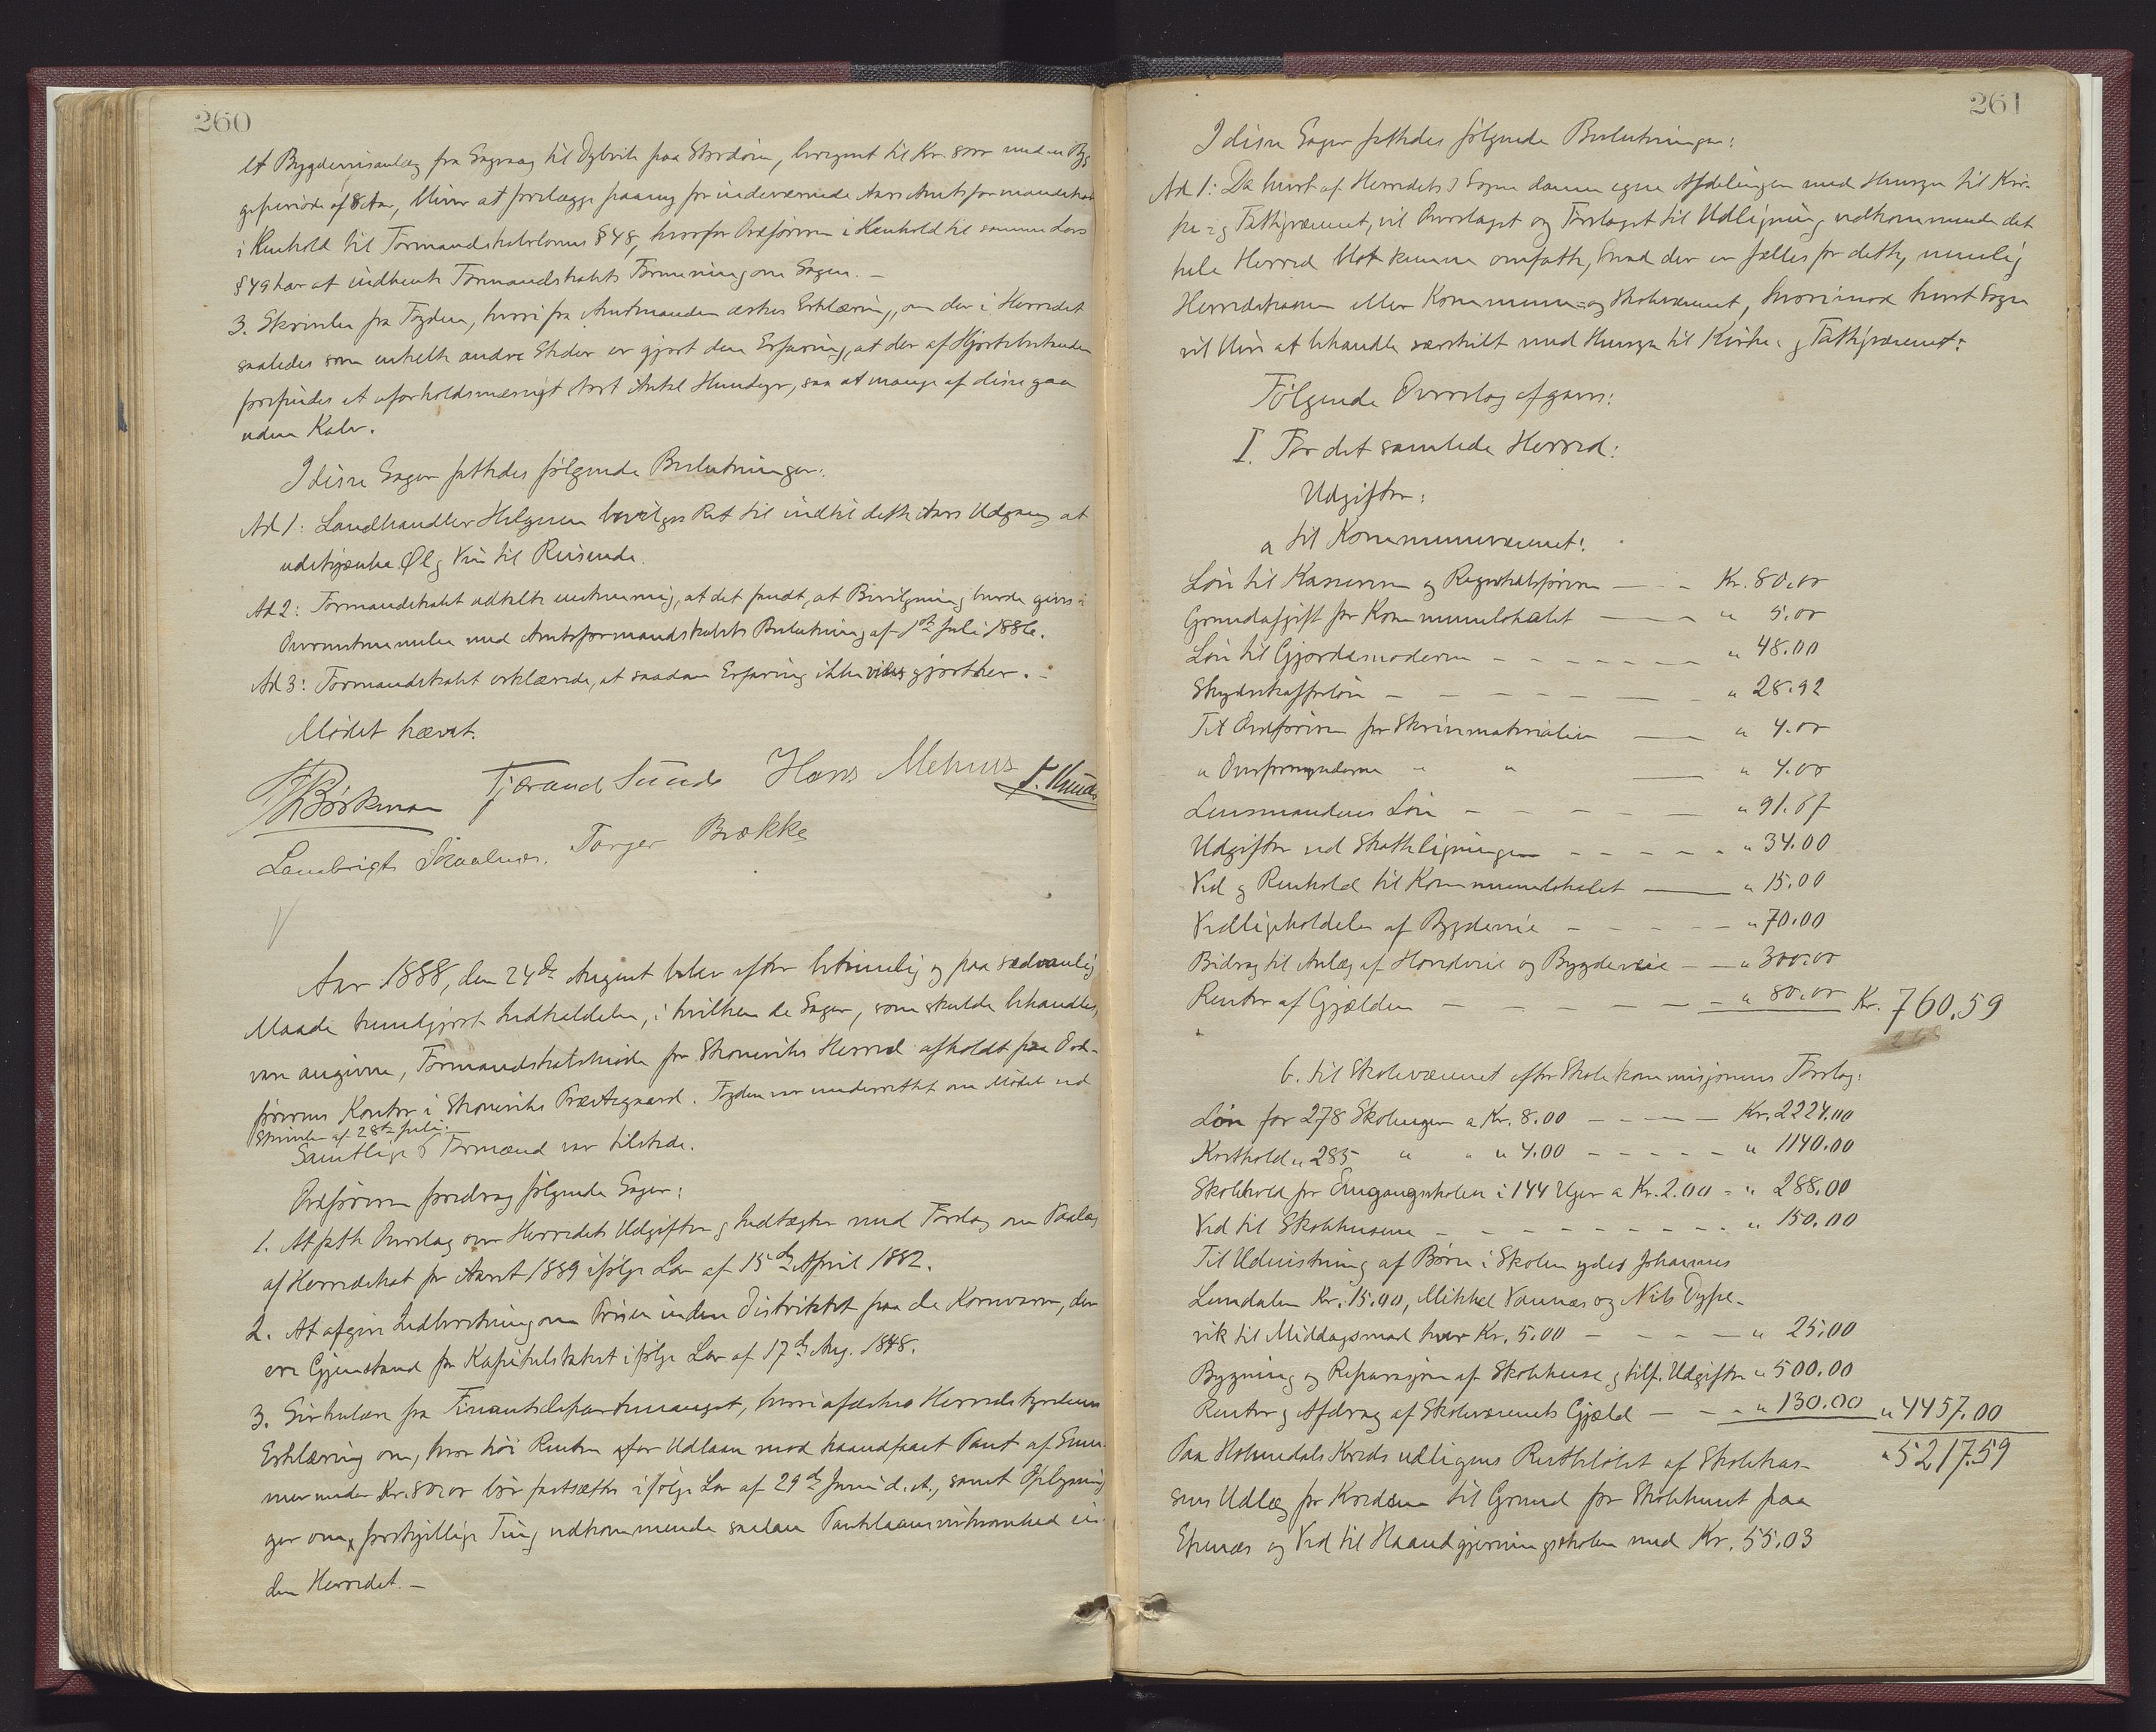 260
et Bygdeveisanlæg fra Sagvaag til Dybvik paa Stordøen, beregnet til Kr. 5000 med en Byg
geperiode af 8 Aar, bliver at forelægge paany for indeværende Aars Amtsformandskab
i Henhold til Formandskabslovens § 48, hvorfor Ordføreren i Henhold til samme Lovs
§ 49 har at indhente Formandskabets Formening om Sagen. –
3. Skrivelse fra Fogden, hvori fra Amtmanden æskes Erklæring, om der i Herredet
saaledes som enkelte andre Steder er gjort den Erfaring, at der af Hjortebestanden
forefindes et uforholdsmæssigt stort Antal Hundyr, saa at mange af disse gaa
uden Kalv.
I disse Sager fattedes følgende Beslutninger:
Ad 1: Landhandler Helgesen bevilges Ret til indtil dette Aars Udgang at
udskjænke Øl og Vin til Reisende.
Ad 2: Formandskabet udtalte enstemmig, at det fandt, at Bevilgning burde gives i
Overensstemmelse med Amtsformandskabets Beslutning af 1ste Juli 1886.
Ad 3: Formandskabet erklærede, at saadan Erfaring ikke vides gjort her. –
Mødet hævet.
Børkman Tjerand Sunde Hans Mehus T. Knuds
Lambrigt Skaalnes. Torger Brekke
Aar 1888, den 24de August blev efter betimelig og paa sædvanlig
Maade kundgjort Indkaldelse, i hvilken de Sager, som skulde behandles,
vare angivne, Formandskabsmøde for Skonevik Herred afholdt paa Ord-
førerens Kontor i Skoneviks Præstegaard. Fogden var underrettet om Mødet ved
Skrivelse af 28de Juli.
Samtlige 6 Formænd var tilstede.
Ordføreren foredrog følgende Sager:
1. At fatte Overslag over Herredets Udgifter og Indtægter med Forslag om Paalæg
af Herredskat for Aaret 1889 ifølge Lov af 15de April 1882.
2. At afgive Indberetning om Prisen inden Distriktet paa de Kornvarer, der
ere Gjenstand for Kapitelstakst ifølge Lov af 17de Aug. 1848.
3. Cirkulære fra Finantsdepartementet, hvori afæskes Herredsstyrelsens
Erklæring om, hvor høi Renten for Udlaan mod haandfaaet Pant af Sum-
mer under Kr. 80,00 bør fastsættes ifølge Lov af 29de Juni d. A., samt Oplysnin
ger om forskjellige Ting vedkommende saadan Pantelaansvirksomhed in-
den Herredet. –
261
I disse Sager fattedes følgende Beslutninger:
Ad 1: Da hvert af Herredets 3 Sogne danner egne Afdelinger med Hensyn til Kir-
ke- og Fattigvæsenet, vil Overslaget og Forslaget til Udligning vedkommende det
hele Herred blot kunne omfatte, hvad der er fælles for dette, nemlig
Herredskassen eller Kommune- og Skolevæsenet, hvorimod hvert Sogn
vil blive at behandle særskilt med Hensyn til Kirke- og Fattigvæsenet:
Følgende Overslag afgaves:
I. For det samlede Herred:
Udgifter:
a til Kommunevæsenet:
Løn til Kassereren og Regnskabsføreren — Kr. 80,00
Grundafgift for Kommunelokalet — „ 5,00
Løn til Gjordemoderen — „ 48.00
Skydsskafferløn — „ 28.92
Til Ordføreren for Skrivematerialier — „ 4.00
„ Overformynderne „ „ — „ 4.00
Lensmandens Løn — „ 91.67
Udgifter ved Skatteligningen — „ 34.00
Ved og Renhold til Kommunelokalet — „ 15.00
Vedligeholdelse af Bygdeveie — „ 70.00
Bidrag til Anlæg af Hovedveie og Bygdeveie — „ 300,00
Renter af Gjælden — „ 80,00 Kr. 760.59
b. til Skolevæsenet efter Skolekommisjonens Forslag:
Løn for 278 Skoleuger a Kr. 8.00 — Kr. 2224.00
Kosthold „ 285 „ „ „ 4.00 — „ 1140.00
Skolehold for Omgangsskolen i 144 Uger a Kr. 2.00 - „ 288.00
Ved til Skolehusene — „ 150.00
Til Underviisning af Børn i Skolen ydes Johannes
Lundalen Kr. 15.00, Mikkel Vannes og Nils Dyfve-
vik til Middagsmad hver Kr. 5.00 — „ 25.00
Bygning og Reparasjon af Skolehuse og tilf. Udgifter „ 500.00
Renter og Afdrag af Skolevæsenets Gjæld — „ 130.00 „ 4457.00
Paa Holmedals Kreds udlignes Restbeløbet af Skolekas- „ 5217.59
sens Udlæg for Kredsen til Grund for Skolehuset paa
Etnenæs og Ved til Haandgjerningsskolen med Kr. 55.03